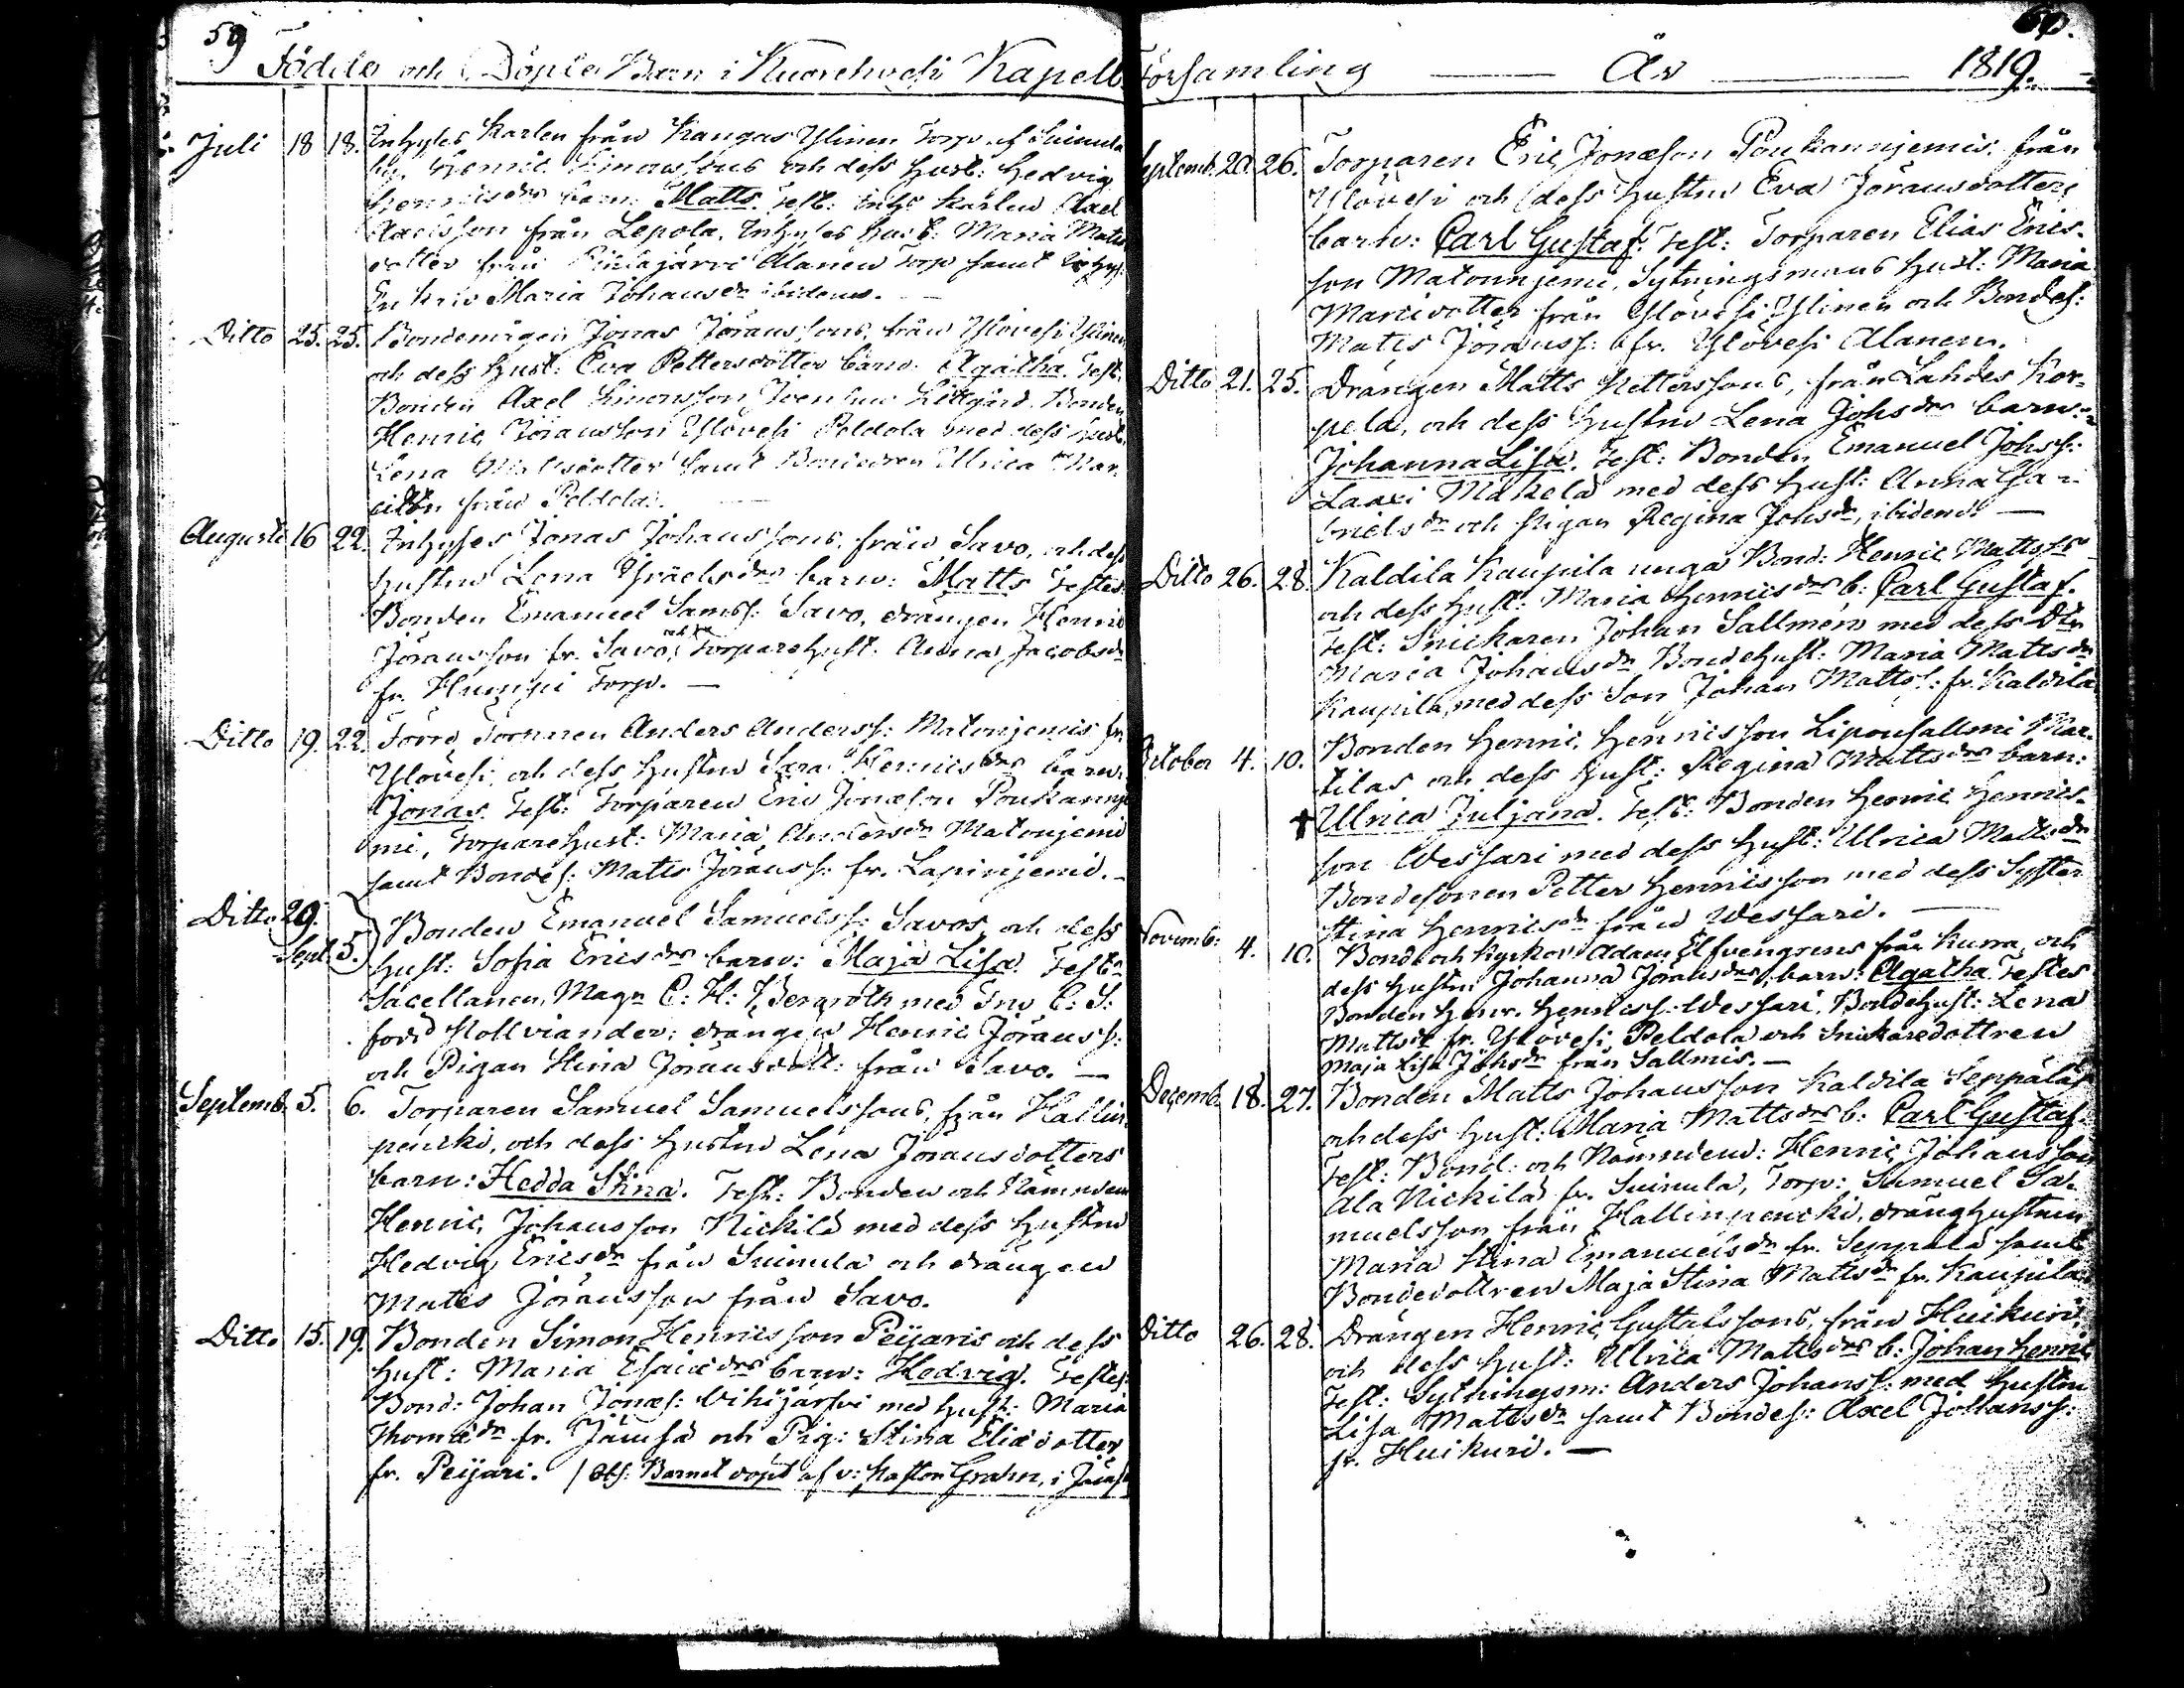 59
Födde och Döpte Barn i Kuorehvesi Kapell
Juli 18 18. Inhyses Karlen från Kangas Ylinen Torp af Suinula
by, Henric Simonssons och dess Hust: Hedvig
Henricsdrs barn: Matts. Test: Inhs Karlen Axel
Axelsson från Lepola, Inhyses Hust: Maria Matts
dotter från Alanen Torp samt Inhys:
Enkan Maria Johansdr ibidem. —
Ditto 25. 25. Bondemågen Jonas Jöranssons, från Ylövesi Ylinen
och dess Hust: Eva Pettersdotter barn: Agatha. Test:
Bonden Axel Simonsson Lillgård. Bonden
Henric Jöransson Ylövesi Peldola med dess Hust:
Lena Mattsdotter samt Ulrica Mar-
från Peldola. —
Augusti 16 22. Inhyses Jonas Johanssons, från Savo, och dess
Hustru Lena Israelsdrs barn: Matts Testes
Bonden Emanuel Samss: Savo, drängen Henric
Jöransson fr. Savo, och Torpare Hust: Anna Jacobsdr
fr. Humpi Torp. —
Ditto 19. 22. Förre Torparen Anders Anderss: Matonjemis fr.
Ylövesi och dess Hustru Sara Henricsdrs barn:
Jonas. Test: Torparen Eric Jonæson Poukannje
mi, TorpareHust: Maria Andersdr Matonjemi
samt Bondes: Matts Jöranss: fr. Lapinjemi. —
Ditto 29.
Sept. 5. Bonden Emanuel Samuelss: Savos och dess
Hust: Sofia Ericsdrs barn: Maja Lisa. Test:
Sacellanen, Magr C: H: Bergroth med Fru C: S:
född Mollviander: drängen Henric Jöranss:
och Pigan Stina Jöransdott: från Savo. —
Septemb. 5. 6. Torparen Samuel Samuelssons, från Hallin
pencki, och dess Hustru Lena Jöransdotters
barn: Hedda Stina. Test: Bonden och Nämndem
Henric Johansson Nickilä med dess Hustru
Hedvig Ericsdr från Suinula och drängen
Matts Jöransson från Savo.
Ditto 15. 19. Bonden Simon Henricsson Peijaris och dess
Hust: Maria Esaiædrs barn: Hedvig. Testes
Bond: Johan Jonæs: Vihijärfvi med Hust: Maria
Thomædr fr. Jämsä och Pig: Stina Eliædotter
fr. Peijari. / Obs: Barnet döpt af v: Pastor Grahn, i Jämsä
60.
Församling — År — 1819.
Septemb. 20. 26. Torparen Eric Jonæson Poukannjemis från
Ylövesi och dess Hustru Eva Jöransdotters
barn: Carl Gustaf. Test: Torparen Elias Erics-
son Matonnjemi, Sytningsmans Hust: Maria
Marcidotter från Ylövesi Ylinen och Bondes:
Matts Jöranss: fr. Ylövesi Alanen.
Ditto 21. 25. Drängen Matts Petterssons, från Lahdes Kor-
pela, och dess Hustru Lena Johsdrs barn:
Johanna Lisa. Test: Bonden Emanuel Johss:
Laaxi Mäkelä med dess Hust: Anna Ga-
brielsdr och Pigan Regina Johsdr, ibidem. —
Ditto 26. 28. Kaldila Kaupila unga Bond: Henric Mattss
och dess Hust: Maria Henricsdrs b: Carl Gustaf.
Test: Snickaren Johan Sallmén med dess Dtr
Maria Johansdr BondeHust: Maria Mattsdr
Kaupila, med dess Son Johan Mattss: fr. Kaldila
October 4. 10. Bonden Henric Henricsson Liponsallmi Mar-
tilas och dess Hust: Regina Mattsdrs barn:
† Ulrica Juljana. Test: Bonden Henric Henrics-
son Wessari med dess Hust: Ulrica Mattsdr
Bondesonen Petter Henricsson med dess Syster
Stina Henricsdr från Wessari. —
Novemb: 4. 10. Bond: och Kyrkov: Adam Elfvengrens från Kurra, och
dess Hustru Johanna Jöransdrs, barn: Agatha. Testes
Bonden Henr. Henricss: Wessari, BondeHust: Lena
Mattsdr fr. Ylövesi Peldola och Snickaredottren
Maja Lisa Johsdr från Sallmis. —
Decemb. 18. 27. Bonden Matts Johansson Kaldila Seppäläs
och dess Hust: Maria Mattsdrs b: Carl Gustaf.
Test: Bond: och Nämndem: Henric Johansson
Ala Nickilä fr. Suinula, Torp: Samuel Sa-
muelsson från Hallinpencki, drängHustrun
Maria Stina Emanuelsdr fr. Seppälä samt
Bondedottren Maja Stina Mattsdr fr. Kaupila.
Ditto 26. 28. Drängen Henric Gustafssons, från Huikuri
och dess Hust: Ulrica Mattsdrs b: Johan Henric
Test: Sytningsm: Anders Johanss: med Hustru
Lisa Mattsdr samt Bondes: Axel Johanss:
fr. Huikuri. —